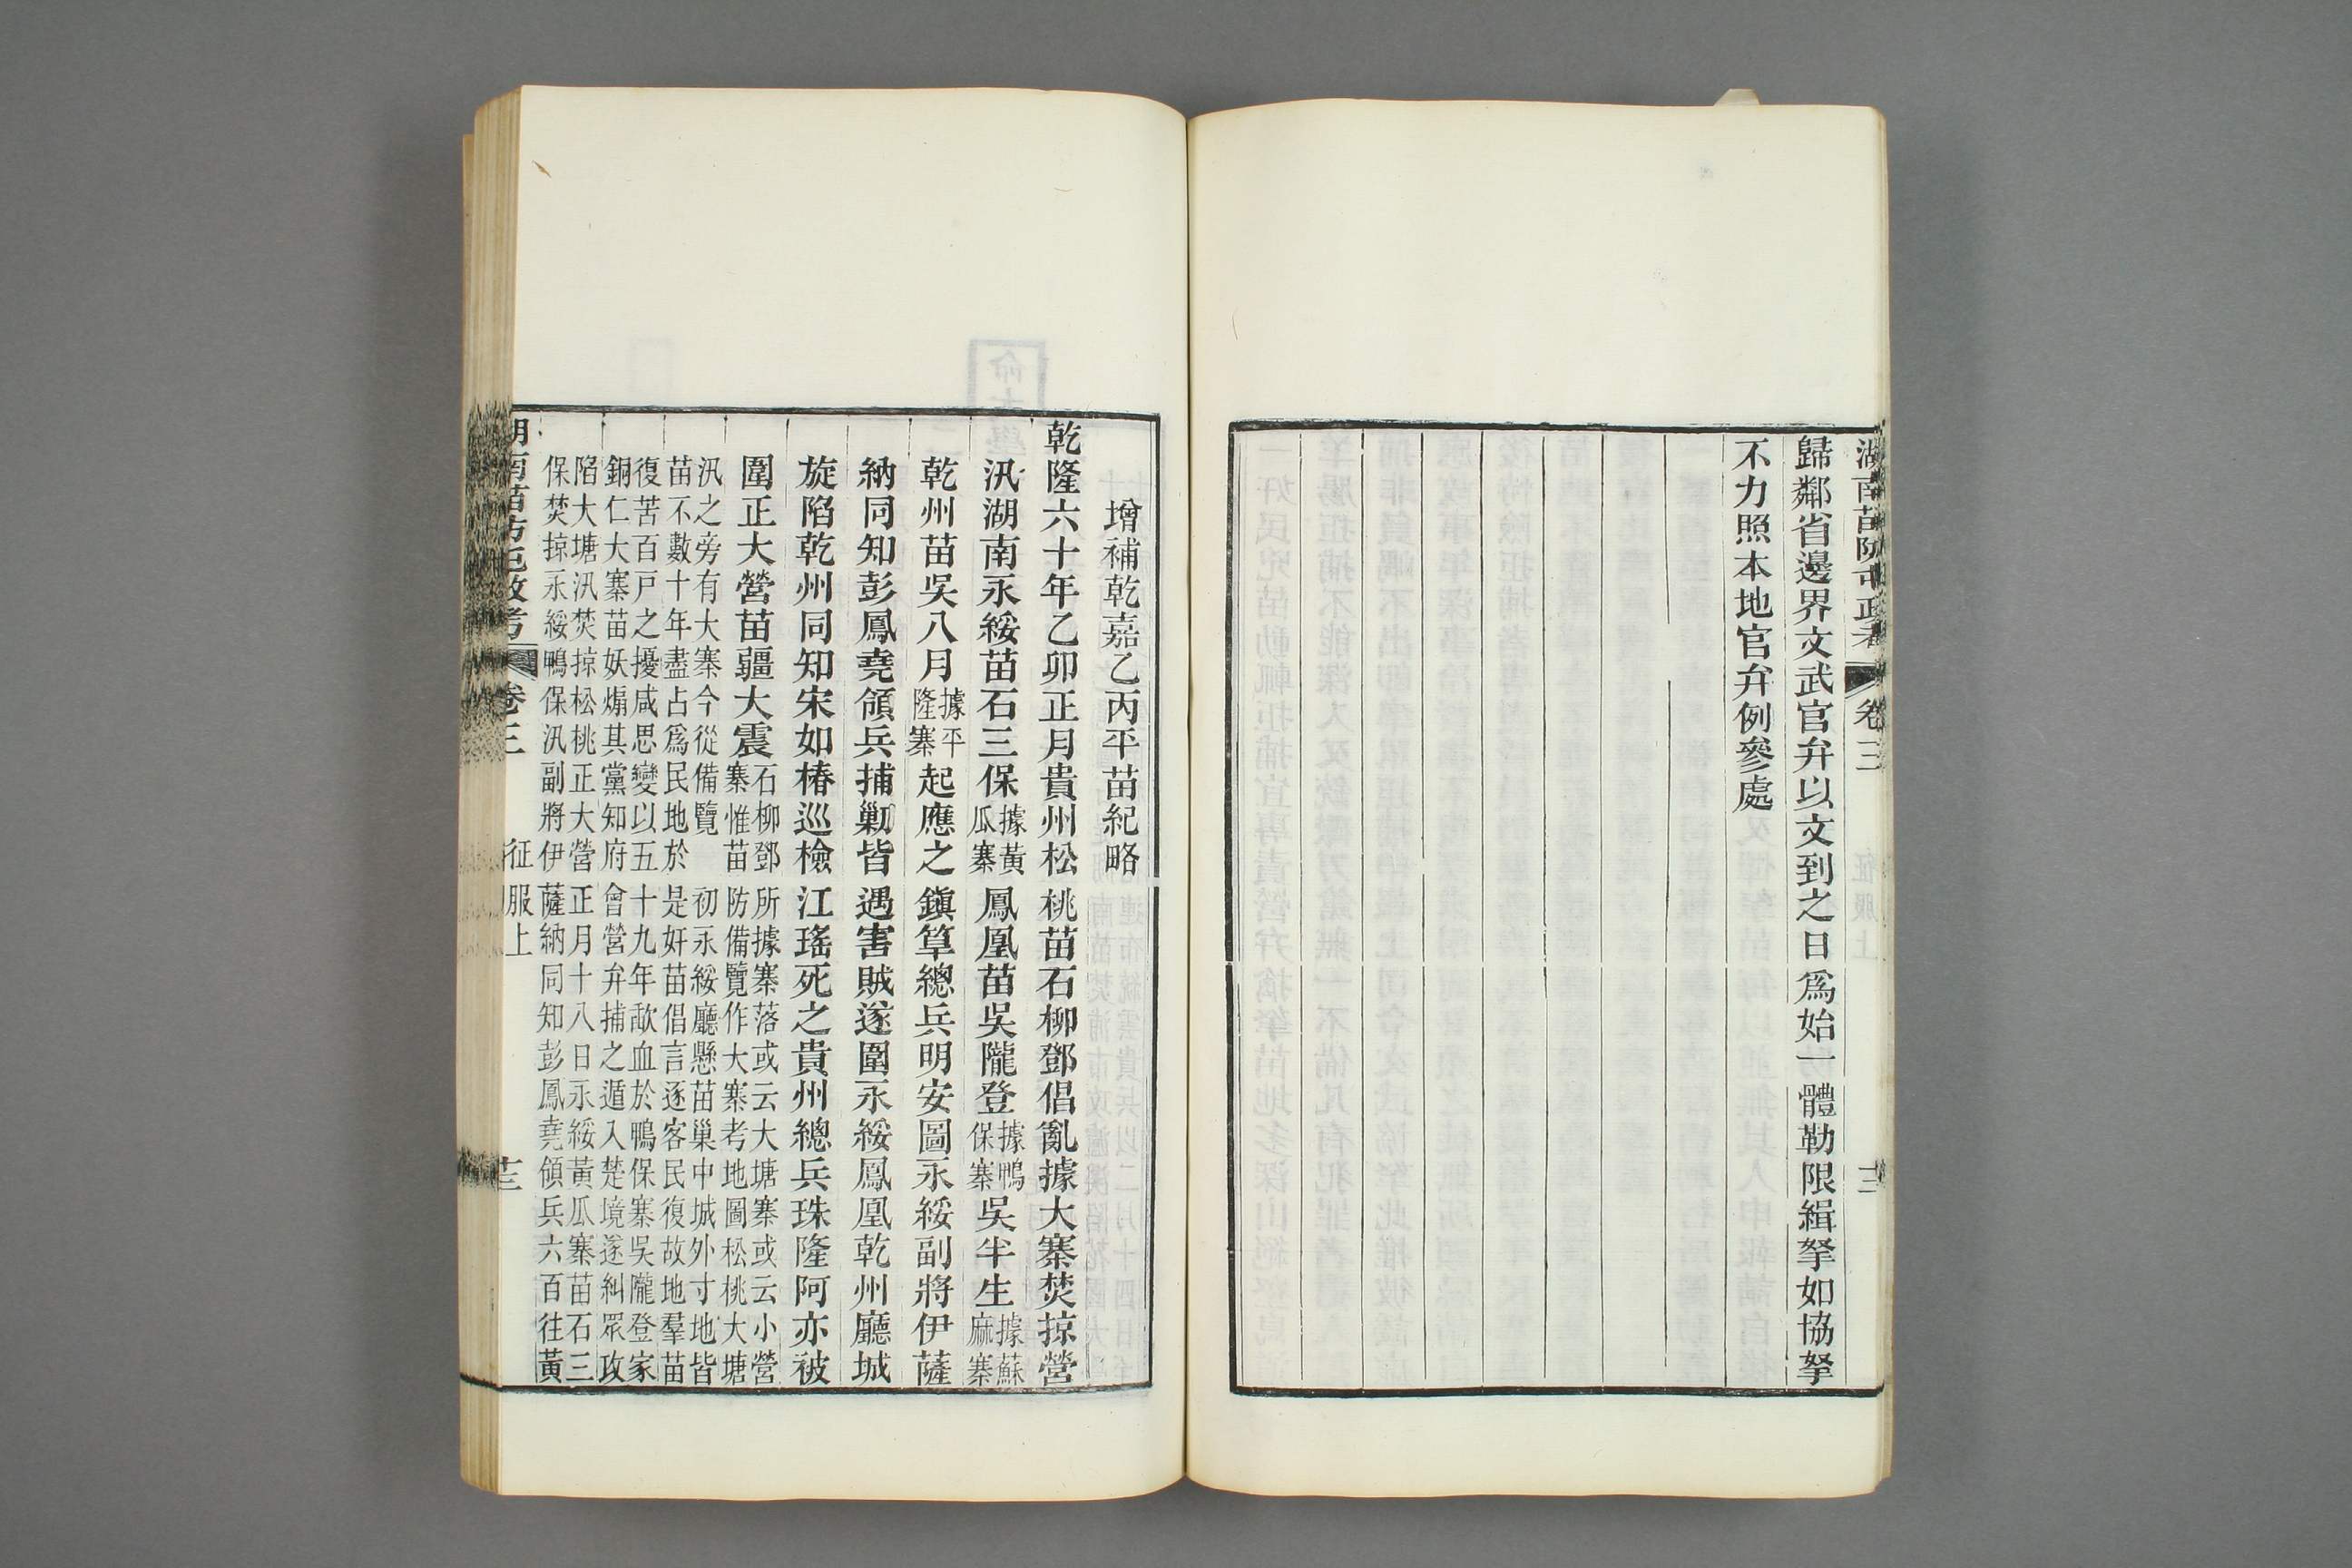 湖南苗防屯政考 卷三 十二
歸鄰省邊界文武官弁以文到之日爲始一體勒限緝拏如協拏
不力照本地官弁例參處
增補乾嘉乙丙平苗紀略
乾隆六十年乙卯正月貴州松桃苗石柳鄧倡亂據大寨焚掠營
汛湖南永綏苗石三保據黃瓜寨鳳凰苗吳隴登據鴨保寨吳半生據蘇麻寨
乾州苗吳八月據平隆寨起應之鎮筸總兵明安圖永綏副將伊薩
納同知彭鳳堯領兵捕勦皆遇害賊遂圍永綏鳳凰乾州廳城
旋陷乾州同知宋如椿巡檢江瑤死之貴州總兵珠隆阿亦被
圍正大營苗疆大震石柳鄧所據寨落或云大塘寨或云小營
寨惟苗防備覽作大寨考地圖松桃大塘
汛之旁有大寨今從備覽 初永綏廳懸苗巢中城外寸地皆
苗不數十年盡占爲民地於是奸苗倡言逐客民復故地羣苗
復苦百戶之擾咸思變以五十九年歃血於鴨保寨吳隴登家
銅仁大寨苗妖煽其黨知府會營弁捕之遁入楚境遂糾眾攻
陷大塘汛焚掠松桃正大營正月十八日永綏黃瓜寨苗石三
保焚掠永綏鴨保汛副將伊薩納同知彭鳳堯領兵六百往黃
湖南苗防屯政考 卷三 征服上 十三